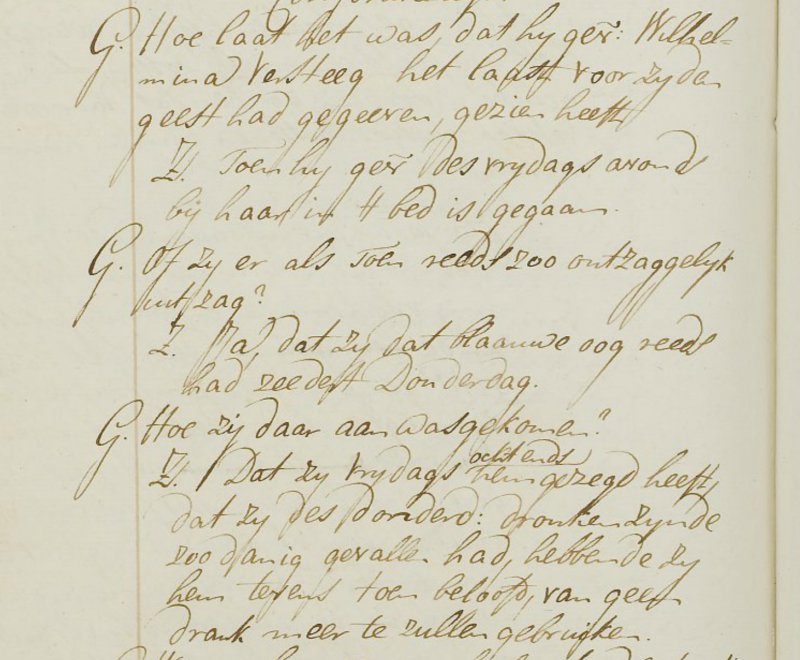 G. Hoe laat het was, dat hy ger̃: Wilhel-
mina Versteeg het laatst voor zy den
geest had gegeeven, gezien heeft
Z. Toen hy ger̃ des vrydags avond
bij haar in 't bed is gegaan.
G. Of zy er als toen reeds zoo ontzaggelyk
uitzag?
Z. Ja, dat zy dat blaauwe oog reeds
had zeedert Donderdag.
G. Hoe zij daar aan was gekomen?
ochtends
Z. Dat zy vrydags hem gezegd heeft,
dat zy des Donderd: dronken zynde
zoodanig gevallen had, hebbende zy
hem tevens toen beloofd, van geen
drank meer te zullen gebruiken.